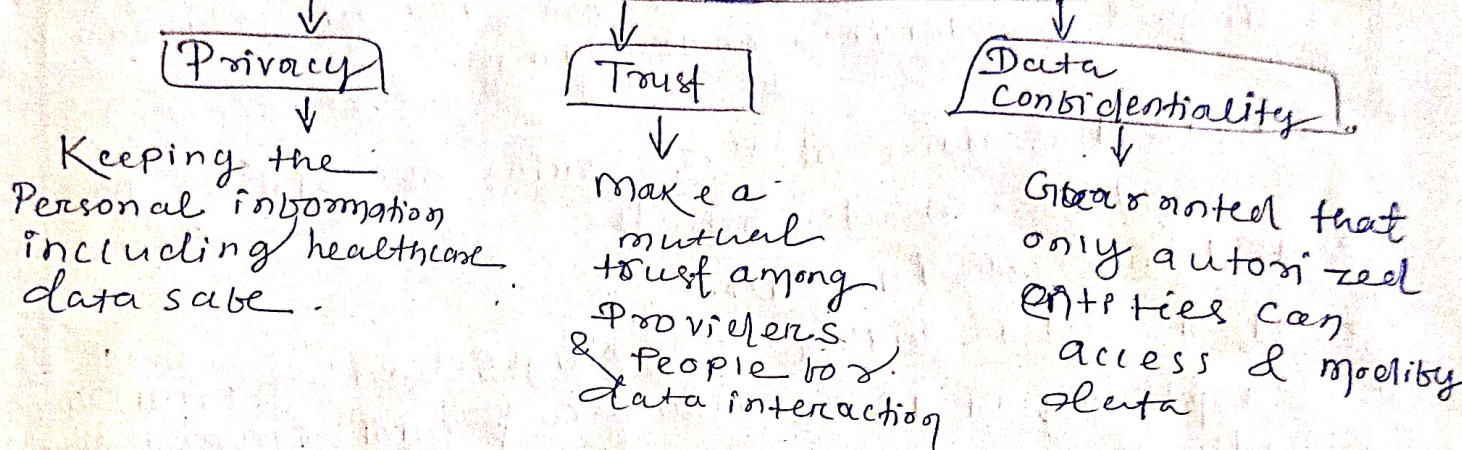 Privacy
Keeping the
Personal information
including healthcare
data safe.
Trust
Make a
mutual
trust among
Providers
& People for
data interaction
Data
Confidentiality
Guaranted that
only autorized
entities can
access & modify
data